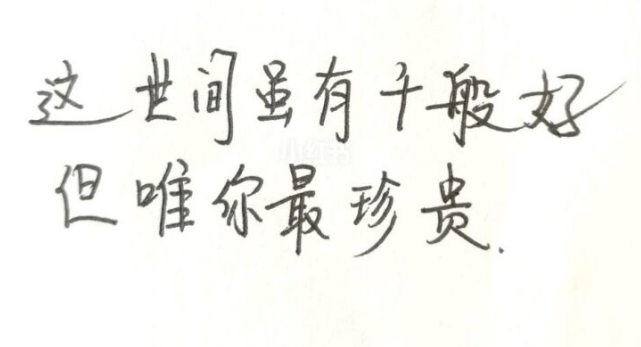 这世间虽有千般好
但唯你最珍贵.
小红书